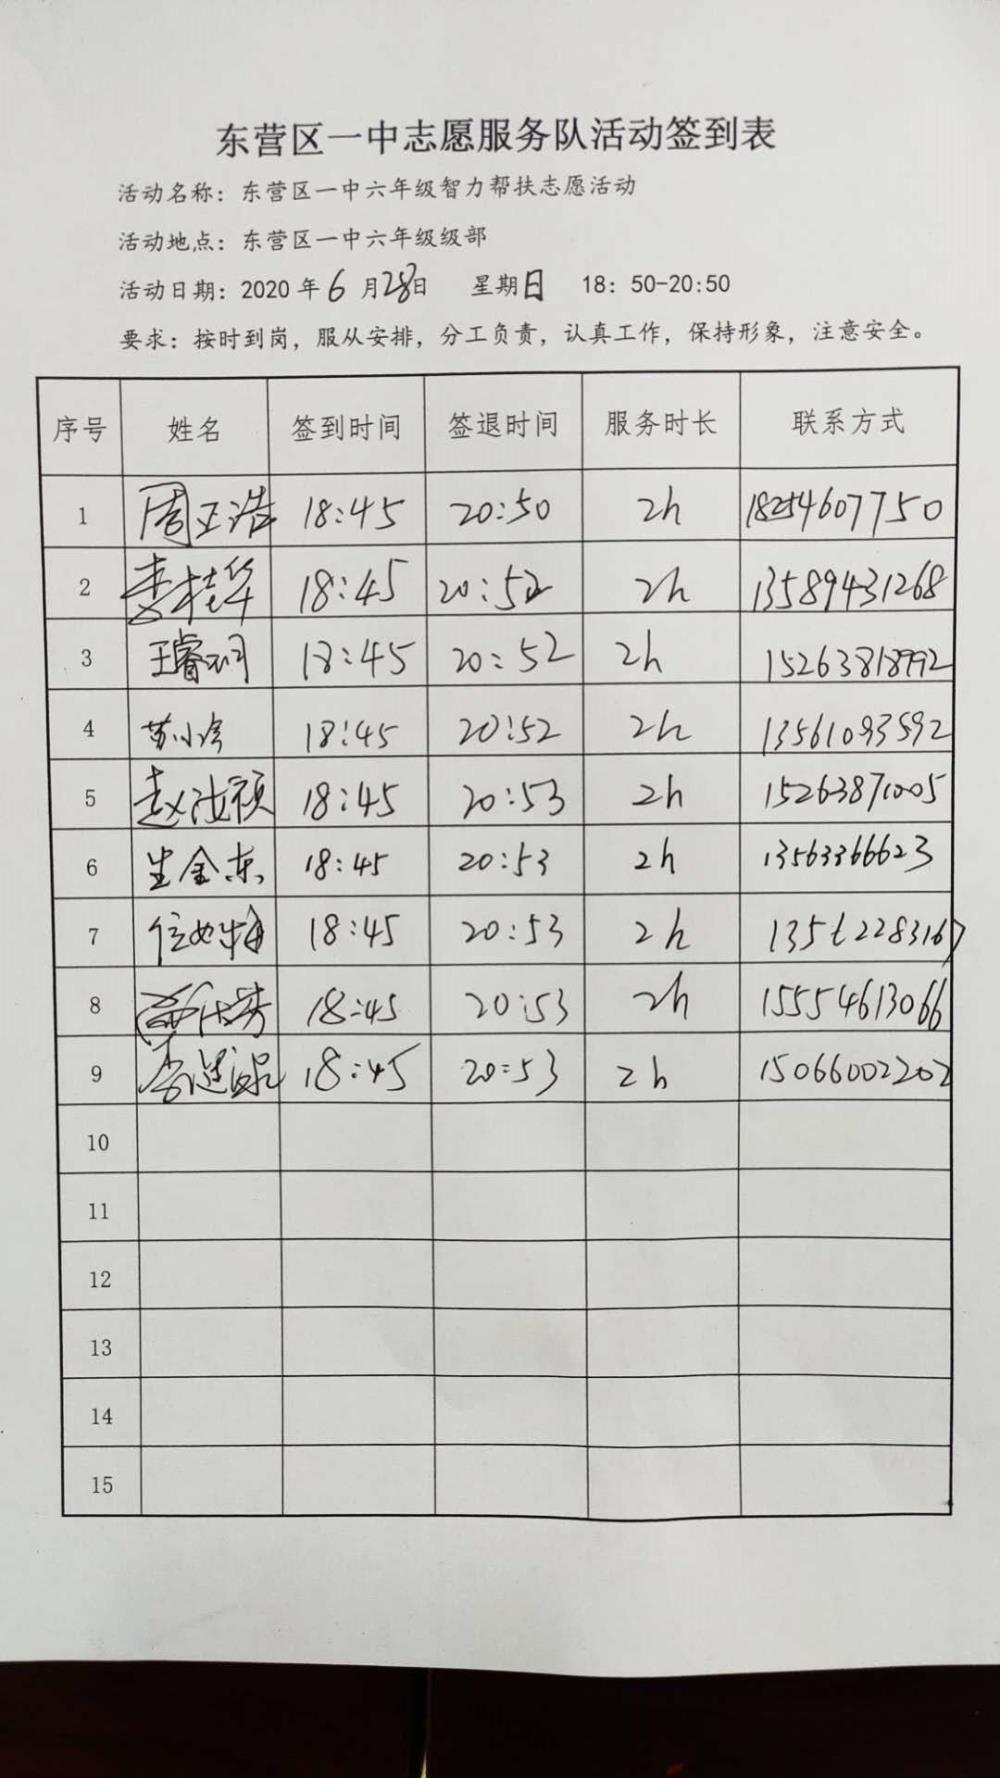 东营区一中志愿服务队活动签到表
活动名称：东营区一中六年级智力帮扶志愿活动
活动地点：东营区一中六年级级部
活动日期：2020 年 6 月 28 日 星期日 18：50-20:50
要求：按时到岗，服从安排，分工负责，认真工作，保持形象，注意安全。
序号 姓名 签到时间 签退时间 服务时长 联系方式
1 周正浩 18:45 20:50 2h 18254607750
2 李桂华 18:45 20:52 2h 13589431268
3 王睿珂 18:45 20:52 2h
4 苏小玲 18:45 20:52 2h 13561093592
5 赵 颖 18:45 20:53 2h 15263871005
6 生金东 18:45 20:53 2h 13563366623
7 位 梅 18:45 20:53 2h
8 18:45 20:53 2h 15554613066
9 李建 18:45 20:53 2h 15066002202
10
11
12
13
14
15